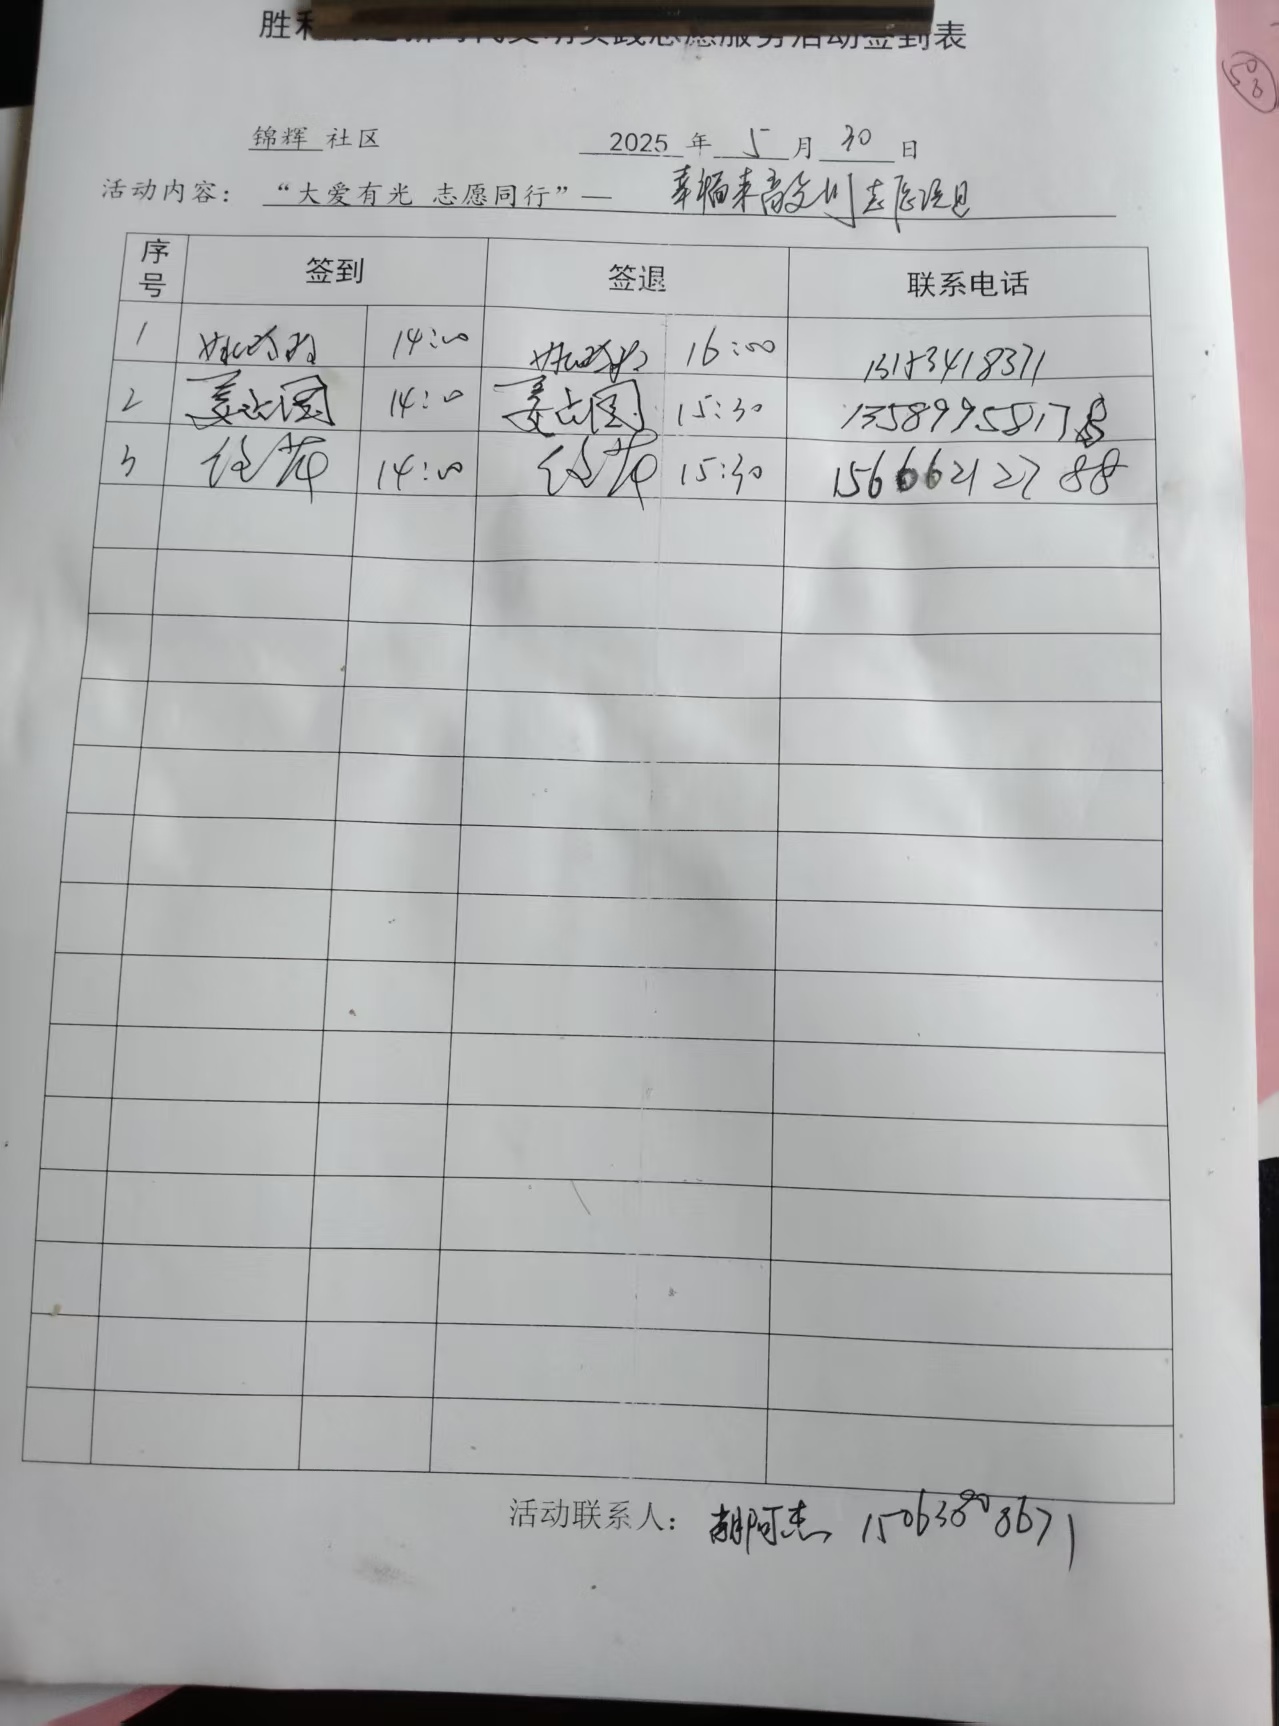 胜利 文明实践志愿服务活动签到表
锦辉 社区 2025 年 5 月 30 日
活动内容： “大爱有光 志愿同行”— 幸福来高 志愿
序号 签到 签退 联系电话
1 14:00 16:00 13153418371
2 姜占国 14:00 姜占国 15:30 13589958178
3 任萍 14:00 任萍 15:30 15666212788
活动联系人： 胡阿杰 15063808671
58